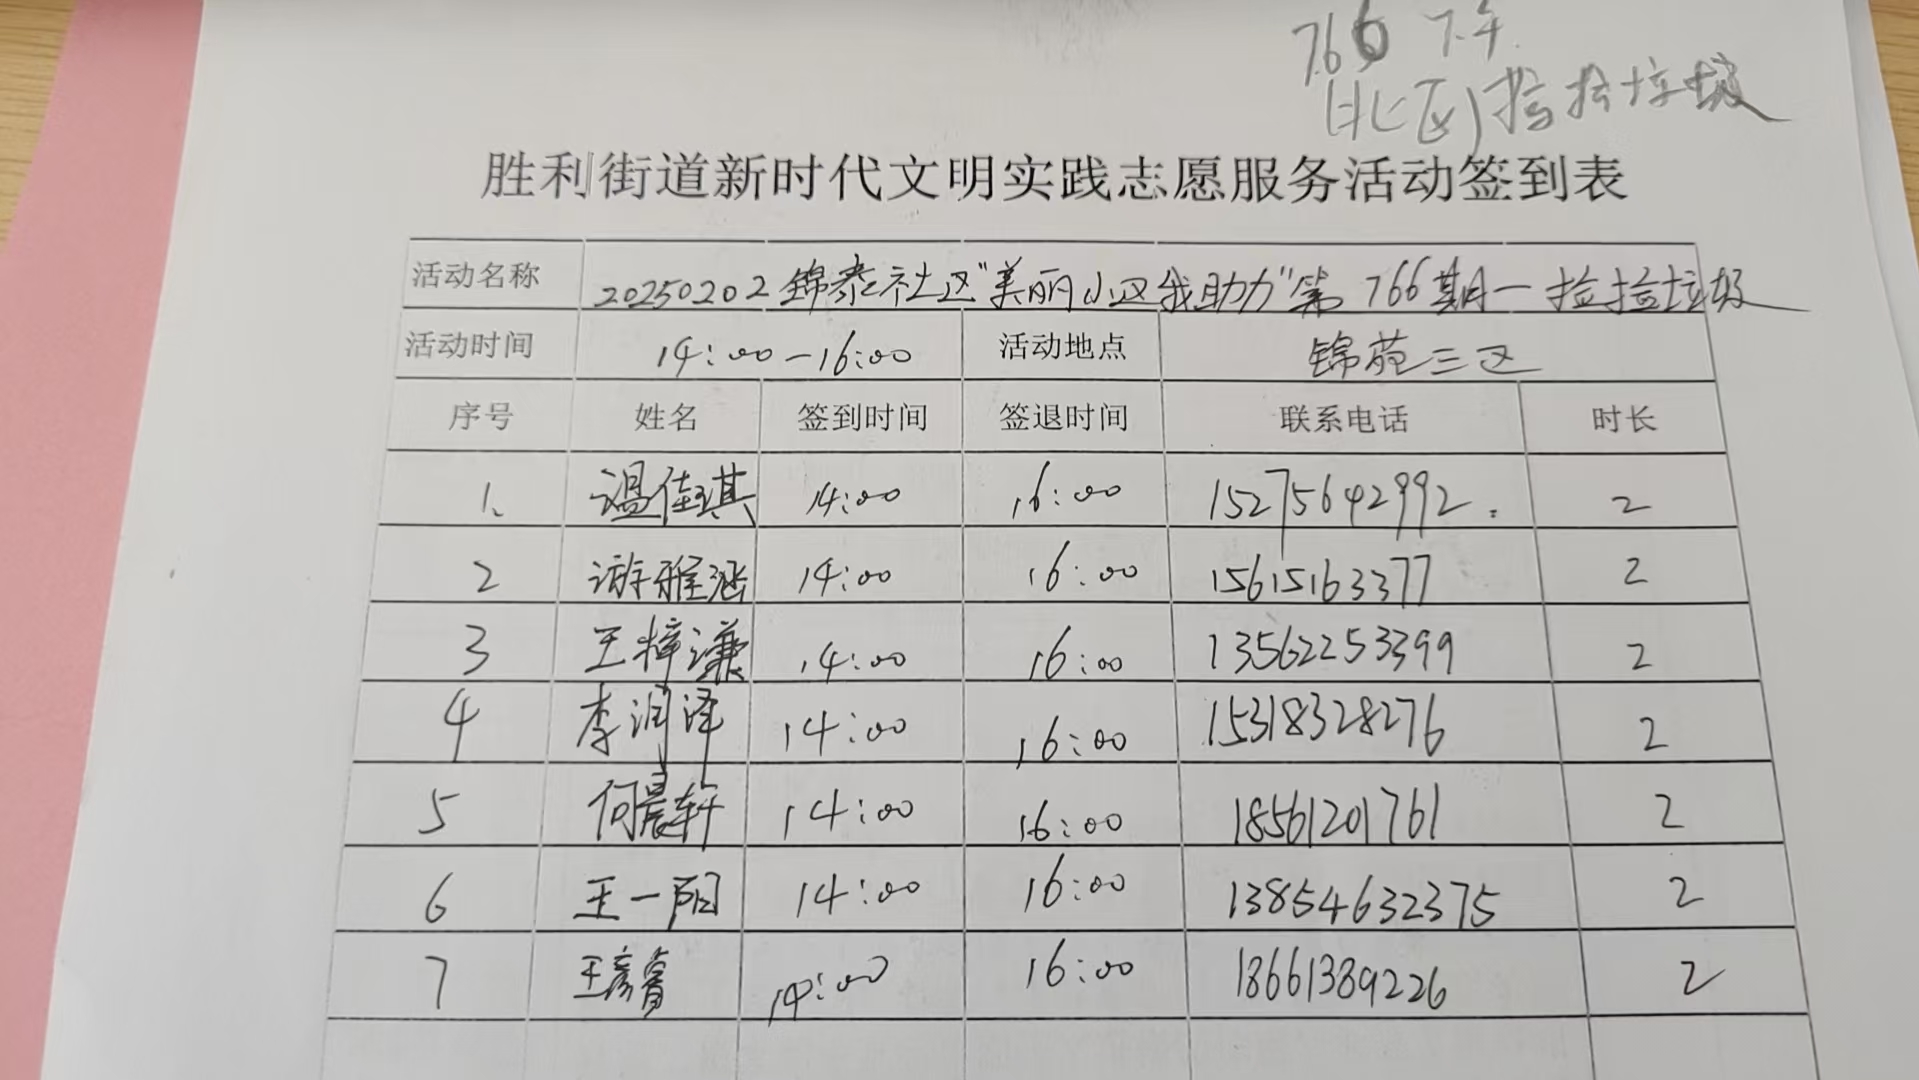 766 下午
(北区)捡捡垃圾
胜利街道新时代文明实践志愿服务活动签到表
活动名称 20250202锦泰社区"美丽小区我助力"第766期—捡捡垃圾
活动时间 14:00—16:00 活动地点 锦苑三区
序号 姓名 签到时间 签退时间 联系电话 时长
1、 温佳琪 14:00 16:00 15275642992. 2
2 游雅涵 14:00 16:00 15615163377 2
3 王梓谦 14:00 16:00 13562253399 2
4 李润泽 14:00 16:00 15318328276 2
5 何晨轩 14:00 16:00 18561201761 2
6 王一阳 14:00 16:00 13854632375 2
7 王彦睿 14:00 16:00 18661389226 2